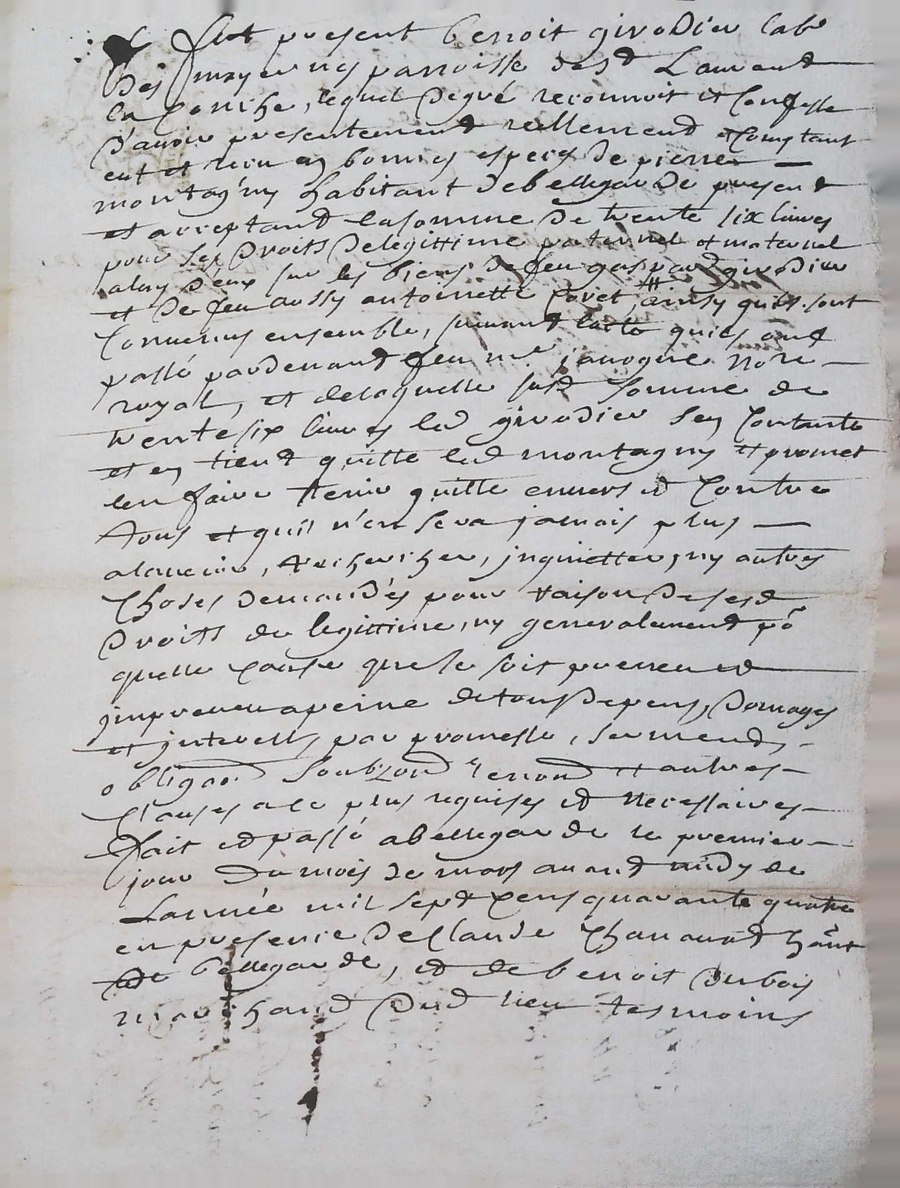 fut present benoit girodier lab^r
Des mayennes parroisse de s^t Laurend
la Conche, lequel de gré reconnoit et Confesse
d'avoir presentement reellement et Comptant
eut et receu en bonnes especes de pierre
montagny habitant de bellegarde present
et acceptant la somme de trente six livres
pour ses Droits de legittime paternel et maternel
a luy deus sur les biens de feu gaspard girodier
et de feu aussy antoinette foret, ainsy qu'ils sont
Convenus ensemble, suivant l'acte qu'ils ont
passé pardevant feu m^e janogne no^re
royal, et de laquelle sus^d somme de
trente six livres led girodier s'en Contante
et en tient quitte led montagny et promet
l'en faire tenir quitte envers et Contre
tous et qu'il n'en sera jamais plus
a lavenir, rechercher, inquietter, ny autres
Choses demandés pour raison de sesd
Droits de legittime, ny generalement po^r
quelle cause que se soit preveue et
impreveue a peine de tous depens, Domages
et interests, par promesse, serment,
obliga^on soubz^on renon^on et autres
Clauses a ce plus requises et necessaires
fait et passé a bellegarde le premier
jour du mois de mars avant midy de
L'année mil sept Cens quarante quatre
en presence de Claude Chanavat h^ant
de bellegarde, et de benoit dubois
marchand dud lieu tesmoins